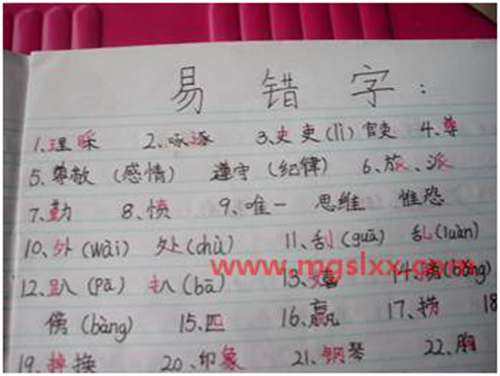 易错字：
1、理睬 2、啄涿 3、史吏(lì)官吏 4、尊
5、尊敬(感情) 遵守(纪律) 6、旅、派
7、勤 8、愤 9、唯一 思维 惟恐
10、外(wài) 处(chù) 11、刮(guā) 乱(luàn)
www.mgslxx.com
12、趴(pā) 扒(bā) 13、 14、(bǎng)
傍(bàng) 15、匹 16、赢 17、捞 18
19、掉换 20、印象 21、钢琴 22、胸